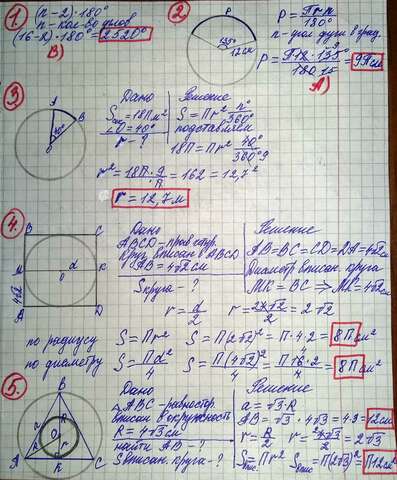 1. (n-2)·180°
n-кол-во углов
(16-2)·180°=2520°
В)
2. P
135°
12см
P = Пrn/180°
n-угол дуги в град.
P = П12·135°/180 = 9Псм
А)
3. A
B
40°
O
Дано
Sсек=18Пм²
∠O=40°
r-?
Решение
S=Пr² n°/360°
подставляем
18П=Пr² 40°/360° 9
r²= 18П·9/П =162=12,7²
r=12,7м
4. B C
M d K
O
A D
4√2
Дано
ABCD-прав.четыр.
Круг вписан в ABCD
AB=4√2см
Sкруга-?
Решение
AB=BC=CD=DA=4√2см
Диаметр вписан круга
MK=BC ⇒ MK=4√2см
r=d/2 r=2√2·2/2=2√2
по радиусу S=Пr² S=П(2√2)²=П·4·2=8Псм²
по диаметру S=Пd²/4 S=П(4√2)²/4=П16·2/4=8Псм²
5. B
a R
O
r
A K C
Дано
ABC-равностор.
вписан в окружность
R=4√3см
найти AB-?
Sвписан.круга-?
Решение
a=√3·R
AB=√3·4√3=4·3=12см
r=R/2 r=4√3/2=2√3
Sвпис.=Пr² Sвпис=П(2√3)²=П12см²